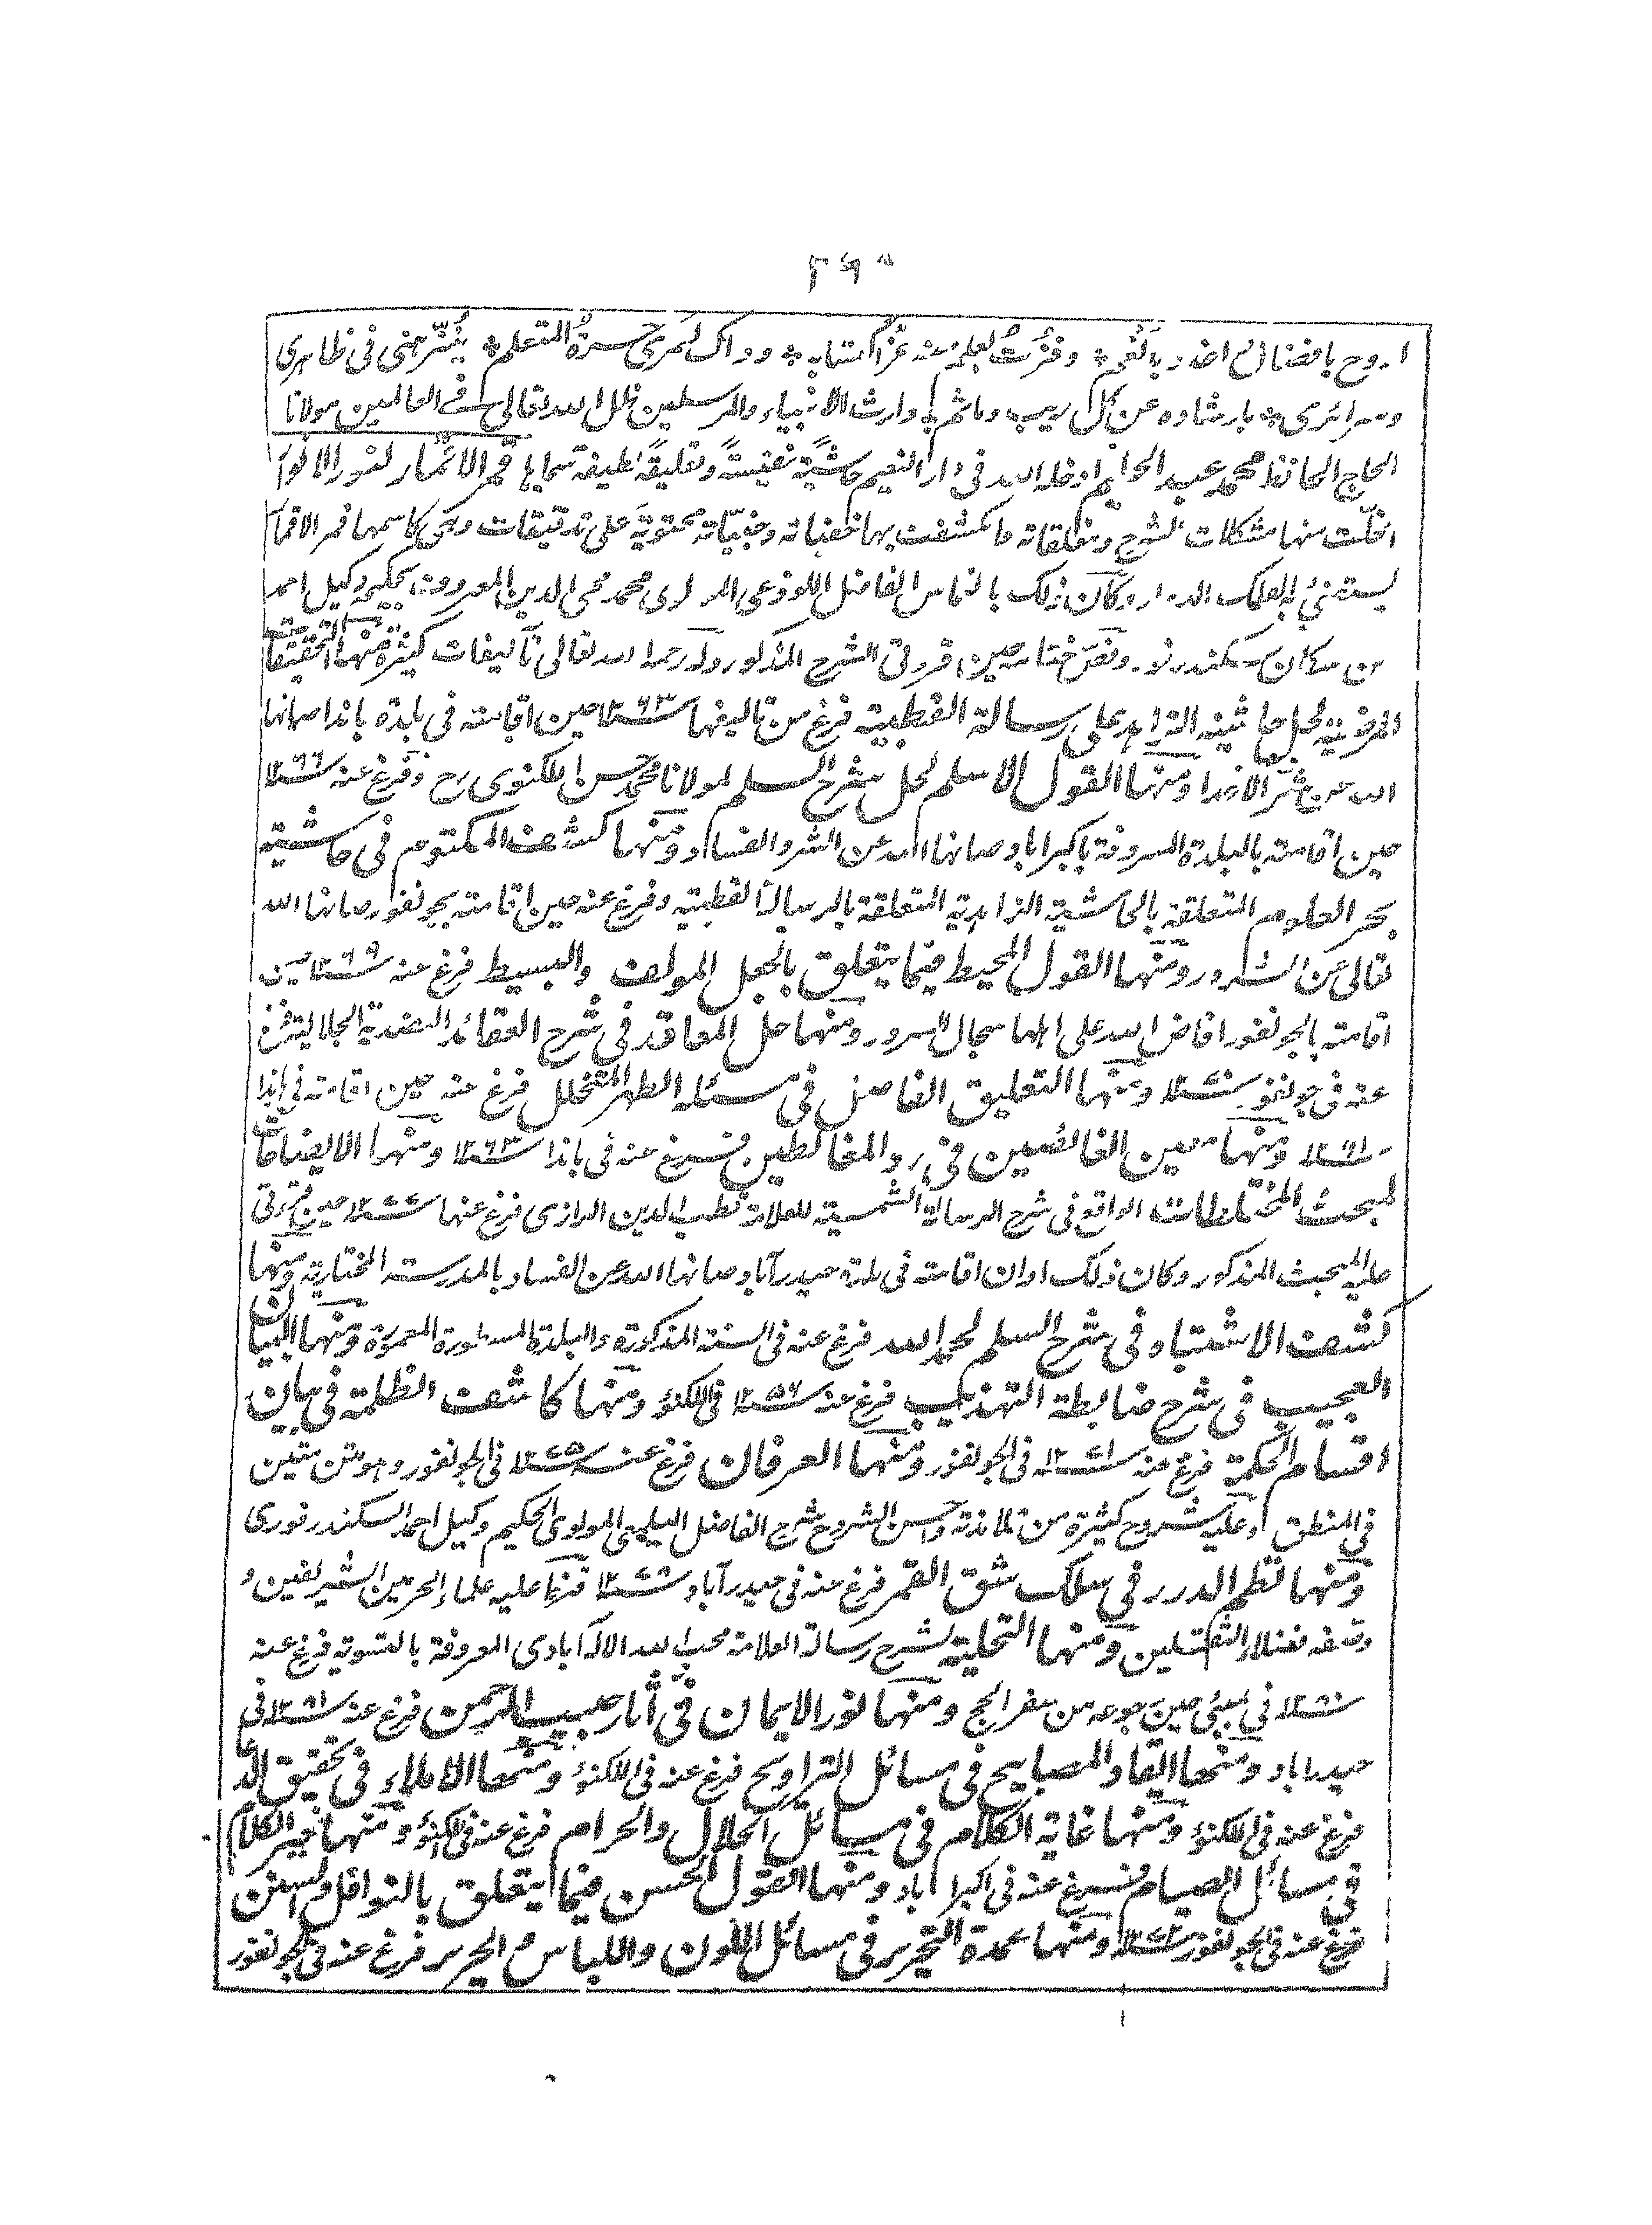 الروح بافضال اغدد بالنعم وفزت لعلمه عن اكتسابه وذاك لعمرى حسرة المتعلم يُسّر منى فى ظاهرى
وسرائرى بارشاده عن كل ريب وماثم وارث الانبياء والمرسلين ظل الله تعالى فى العالمين مولانا
الحاج الحافظ محمد عبد الحليم ادخله الله فى دار النعيم حاشية نفيسة وتعليقة لطيفة سماها قمر الاقمار لنور الانوار
انحلّت منها مشكلات الشرح ومغلقاته وانكشفت بها خفياته وخبيّاته محتوية على تدقيقات وهى كاسمها قمر الاقمار
يستضئ به الفلك الدوار وكان ذلك بالتماس الفاضل اللوذعى المولوى محمد محى الدين المعروف بحكيم وكيل احمد
من سكان سكندرفور وتمّ ختامه حين قرءتى الشرح المذكور وله رحمه الله تعالى تاليفات كثيرة منها التحقيقات
المرضية لحل حاشية الزاهد على رسالة القطبية فرغ من تاليفها سنة ۱۲۶۳ حين اقامته فى بلدة باندا صانها
الله عن شر الاعدا ومنها القول الاسلم لحل شرح السلم لمولانا محمد حسن اللكنوى رح وفرغ عنه سنة ۱۲۶۶
حين اقامته بالبلدة المعروفة باكبراباد صانها الله عن الشر والفساد ومنها كشف المكتوم فى حاشية
بحر العلوم المتعلقة بالحاشية الزاهدية المتعلقة بالرسالة القطبية وفرغ عنه حين اقامته بجونفور صانها الله
تعالى عن الشرور ومنها القول المحيط فيما يتعلق بالجعل المولف والبسيط فرغ عنه سنة حين
اقامته بالجونفور افاض الله على اهلها سجال السرور ومنها حل المعاقد فى شرح العقائد العضدية الجلالية فرغ
عنه فى جونفور سنة ۱۲۷۰ ومنها التعليق الفاصل فى مسئلة الطهر المتخلل فرغ عنه حين اقامته فى باندا
سنة ۱۲۶۱ ومنها معين الغائصين فى رد المغالطين فرغ عنه فى باندا سنة ۱۲۶۳ ومنها الايضاحات
لمبحث المختلطات الواقع فى شرح الرسالة الشمسية للعلامة قطب الدين الرازى فرغ عنها سنة ۱۲۷۷ حين قرءتى
عليه المبحث المذكور وكان ذلك اوان اقامته فى بلدة حيدرآباد صانها الله عن الفساد بالمدرسة المختارية ومنها
كشف الاشتباه فى شرح السلم لحمد الله فرغ عنه فى السنة المذكورة والبلدة المسطورة المعمورة ومنها البيان
العجيب فى شرح ضابطة التهذيب فرغ عنه سنة فى اللكنؤ ومنها كاشف الظلمة فى بيان
اقسام الحكمة فرغ عنه سنة ۱۲۷۱ فى الجونفور ومنها العرفان فرغ عنه سنة ۱۲۷۵ فى الجونفور وهو متن متين
فى المنطق وعليه شروح كثيرة من تلامذته واحسن الشروح شرح الفاضل اليلمعى المولوى الحكيم وكيل احمد السكندرفورى
ومنها نظم الدرر فى سلك شق القمر فرغ عنه فى حيدرآباد سنة قرظ عليه علماء الحرمين الشريفين و
وصفه فضلاء الثقلين ومنها التحلية لشرح رسالة العلامة محب الله الاله آبادى المعروفة بالتسوية فرغ عنه
سنة ۱۲۸۰ فى بمبئى حين رجوعه من سفر الحج ومنها نور الايمان فى آثار حبيب الرحمن فرغ عنه سنة ۱۲۸۱ فى
حيدراباد ومنها ايقاد المصابيح فى مسائل التراويح فرغ عنه فى اللكنؤ ومنها الاملاء فى تحقيق الدعا
فرغ عنه فى اللكنؤ ومنها غاية الكلام فى مسائل الحلال والحرام فرغ عنه فى اللكنؤ ومنها خير الكلام
فى مسائل الصيام فرغ عنه فى اكبراباد ومنها القول الحسن فيما يتعلق بالنوافل والسنن
فرغ عنه فى الجونفور سنة ومنها عمدة التحرير فى مسائل اللون واللباس والحرير فرغ عنه فى الجونفور